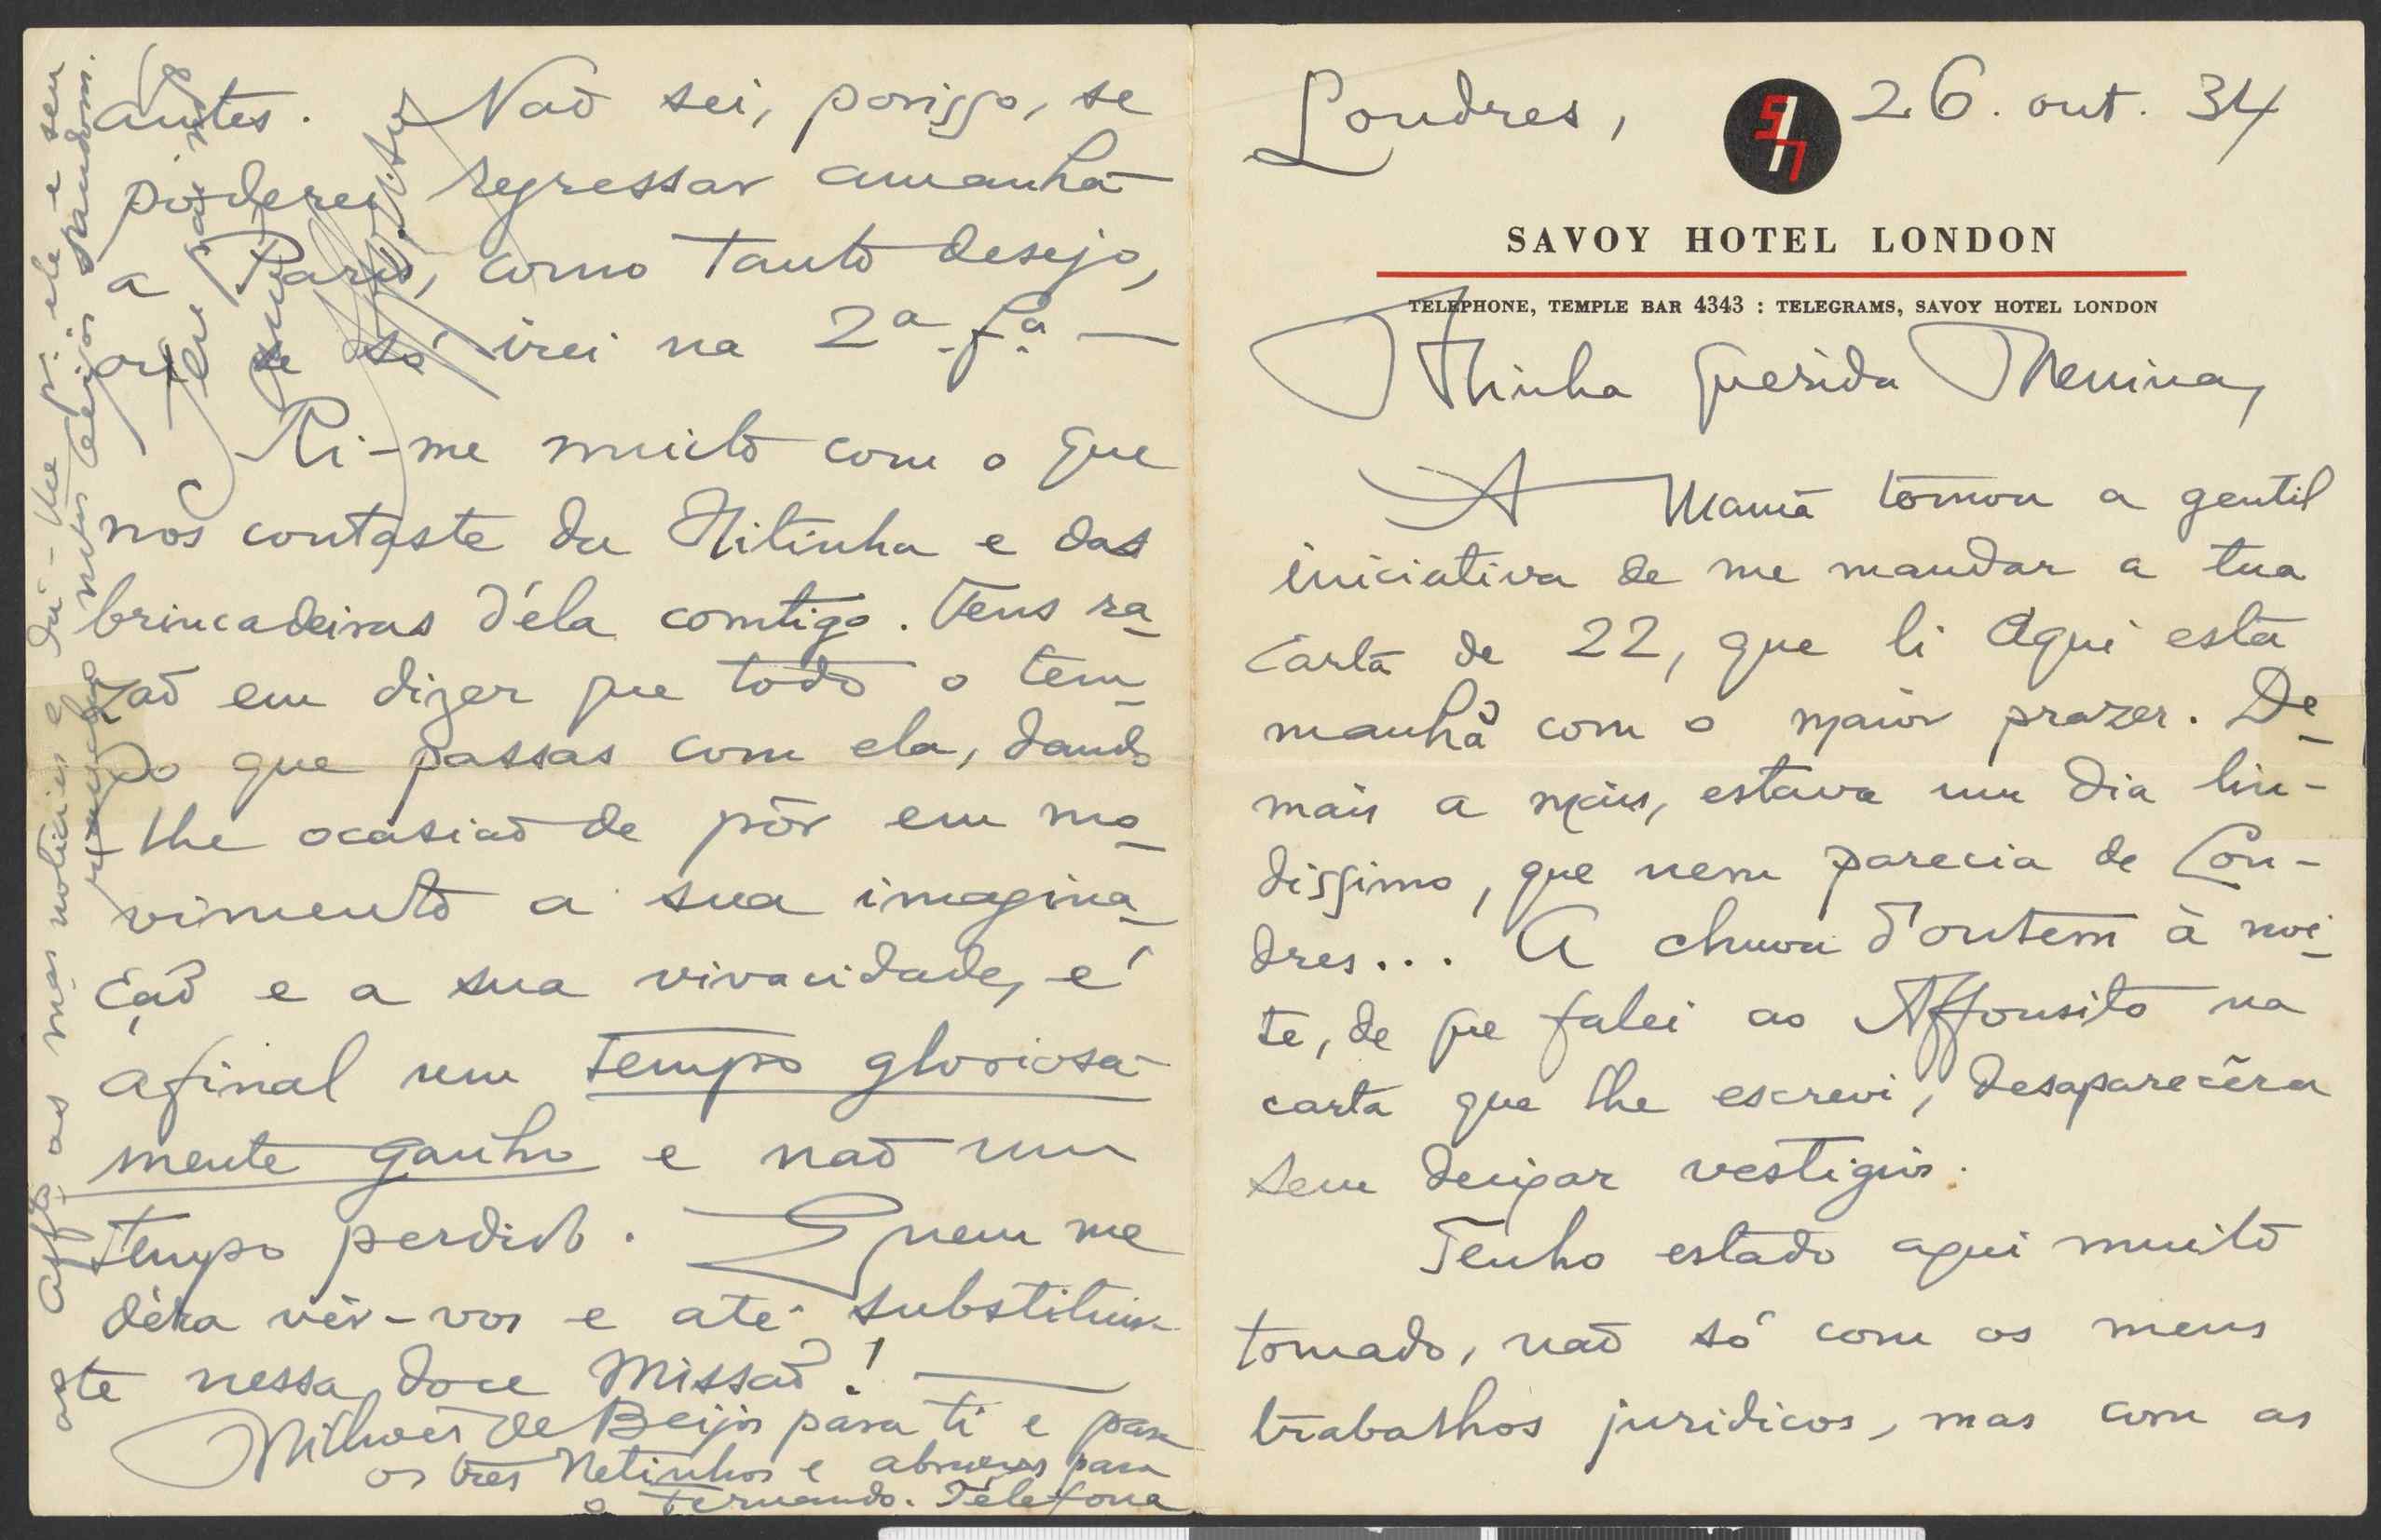 Londres, 26. out. 34
SAVOY HOTEL LONDON
TELEPHONE, TEMPLE BAR 4343 : TELEGRAMS, SAVOY HOTEL LONDON
Minha querida Menina,
A Mamã tomou a gentil
iniciativa de me mandar a tua
carta de 22, que li aqui esta
manhã com o maior prazer. De-
mais a mais, estava um dia lin-
dissimo, que nem parecia de Lon-
dres... A chuva d'ontem à noi-
te, de que falei ao Affonsito na
carta que lhe escrevi, desaparecêra
sem deixar vestigios.
Tenho estado aqui muito
tomado, não só com os meus
trabalhos juridicos, mas com as
antes. Não sei, porisso, se
poderei regressar amanhã
a Paris, como tanto desejo,
ou se só irei na 2ª fª. —
Ri-me muito com o que
nos contaste da Nitinha e das
brincadeiras d'éla comtigo. Tens ra-
zão em dizer que todo o tem-
po que passas com ela, dando
-lhe ocasião de pôr em mo-
vimento a sua imagina-
ção e a sua vivacidade, é
afinal um tempo gloriosa-
mente ganho e não um
tempo perdido. Quem me
déra vêr-vos e até substituir-
te nessa doce missão! —
Milhões de Beijos para ti e para
os tres Netinhos e abraços para
o Fernando. Telefona
ao Affº as mas noticias e dá-lhe pr. ele e seu
rancho muitos beijos grandes.